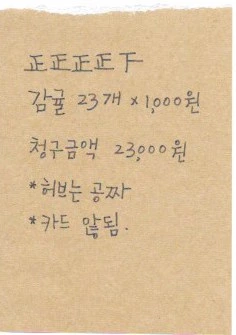 正正正正下
감귤 23개 × 1,000원
청구금액 23,000원
*허브는 공짜
*카드 않됨.